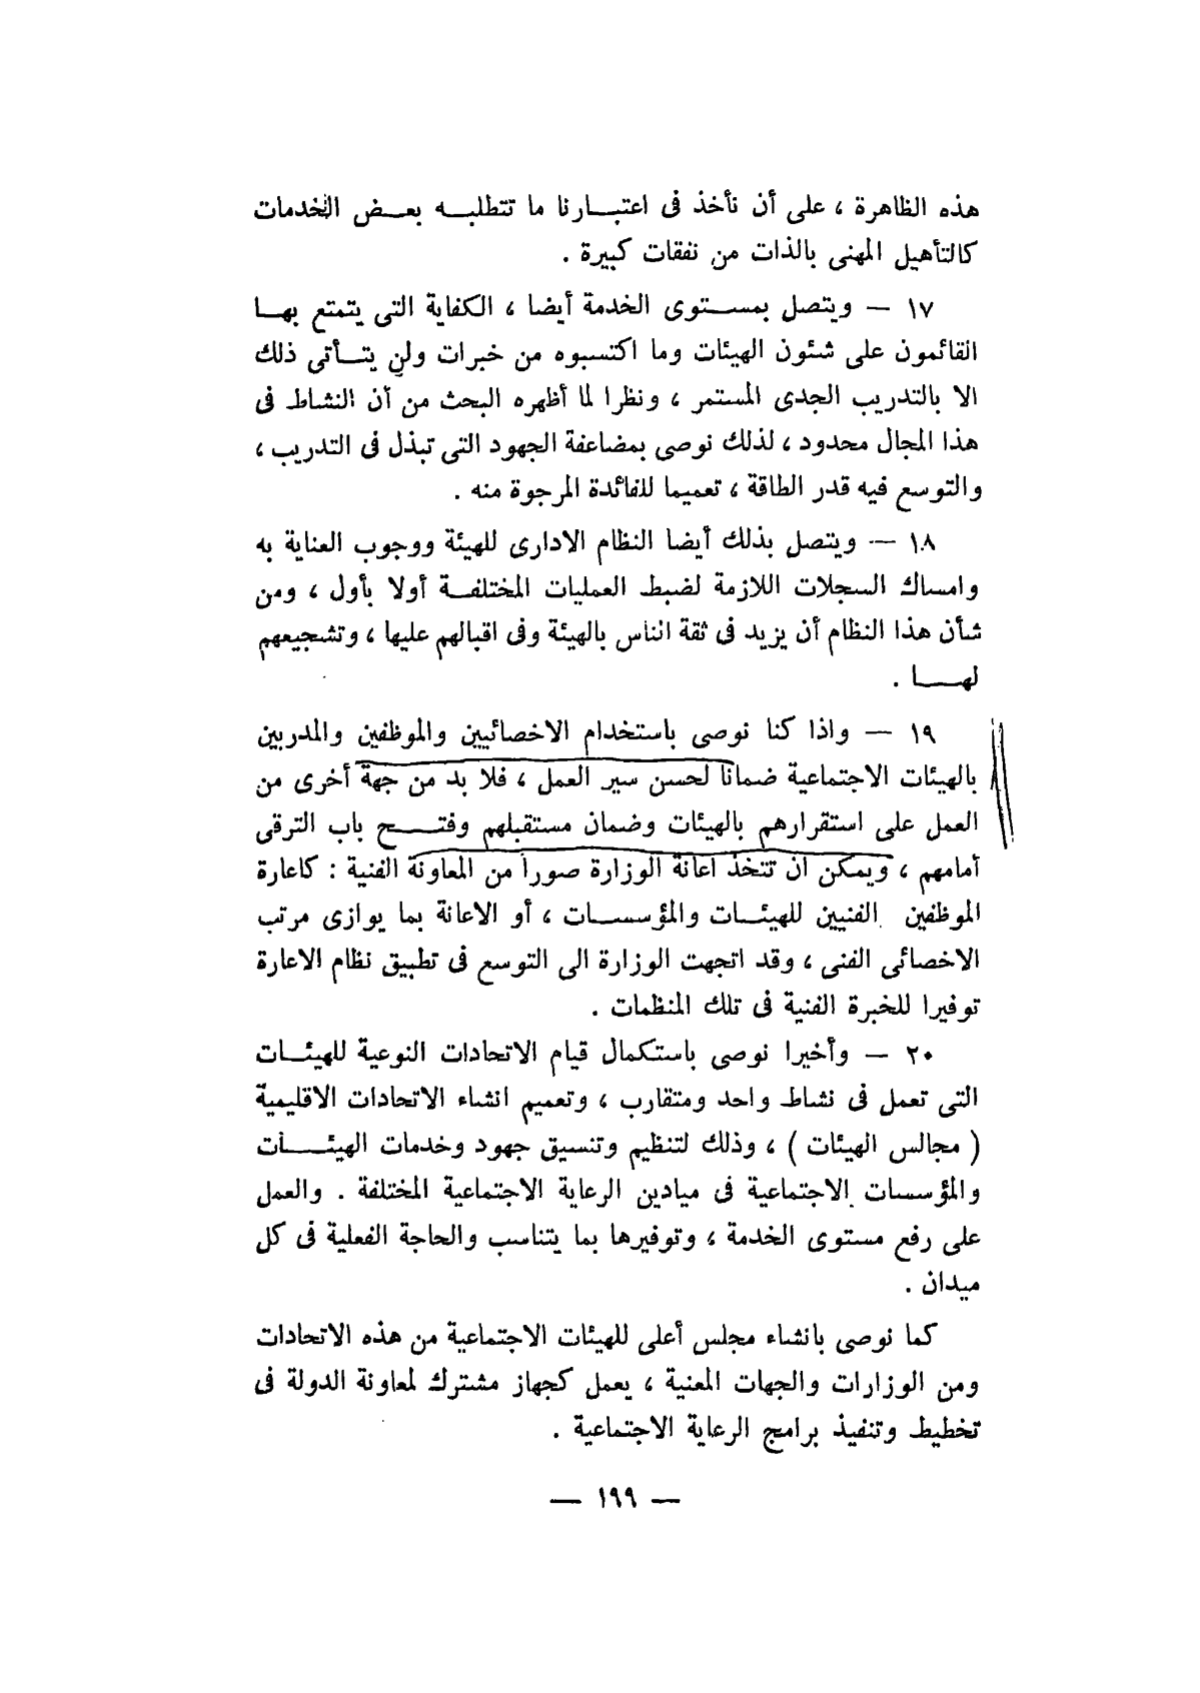 هذه الظاهرة ، على أن نأخذ فى اعتبارنا ما تتطلبه بعض الخدمات
كالتأهيل المهنى بالذات من نفقات كبيرة .
١٧ — ويتصل بمستوى الخدمة أيضا ، الكفاية التى يتمتع بها
القائمون على شئون الهيئات وما اكتسبوه من خبرات ولن يتأتى ذلك
الا بالتدريب الجدى المستمر ، ونظرا لما أظهره البحث من أن النشاط فى
هذا المجال محدود ، لذلك نوصى بمضاعفة الجهود التى تبذل فى التدريب ،
والتوسع فيه قدر الطاقة ، تعميما للفائدة المرجوة منه .
١٨ — ويتصل بذلك أيضا النظام الادارى للهيئة ووجوب العناية به
وامساك السجلات اللازمة لضبط العمليات المختلفة أولا بأول ، ومن
شأن هذا النظام أن يزيد فى ثقة الناس بالهيئة وفى اقبالهم عليها ، وتشجيعهم
لها .
١٩ — واذا كنا نوصى باستخدام الاخصائيين والموظفين والمدربين
بالهيئات الاجتماعية ضمانا لحسن سير العمل ، فلا بد من جهة أخرى من
العمل على استقرارهم بالهيئات وضمان مستقبلهم وفتح باب الترقى
أمامهم ، ويمكن أن تتخذ اعانة الوزارة صورا من المعاونة الفنية : كاعارة
الموظفين الفنيين للهيئات والمؤسسات ، أو الاعانة بما يوازى مرتب
الاخصائى الفنى ، وقد اتجهت الوزارة الى التوسع فى تطبيق نظام الاعارة
توفيرا للخبرة الفنية فى تلك المنظمات .
٢٠ — وأخيرا نوصى باستكمال قيام الاتحادات النوعية للهيئات
التى تعمل فى نشاط واحد ومتقارب ، وتعميم انشاء الاتحادات الاقليمية
( مجالس الهيئات ) ، وذلك لتنظيم وتنسيق جهود وخدمات الهيئات
والمؤسسات الاجتماعية فى ميادين الرعاية الاجتماعية المختلفة . والعمل
على رفع مستوى الخدمة ، وتوفيرها بما يتناسب والحاجة الفعلية فى كل
ميدان .
كما نوصى بانشاء مجلس أعلى للهيئات الاجتماعية من هذه الاتحادات
ومن الوزارات والجهات المعنية ، يعمل كجهاز مشترك لمعاونة الدولة فى
تخطيط وتنفيذ برامج الرعاية الاجتماعية .
— ١٩٩ —